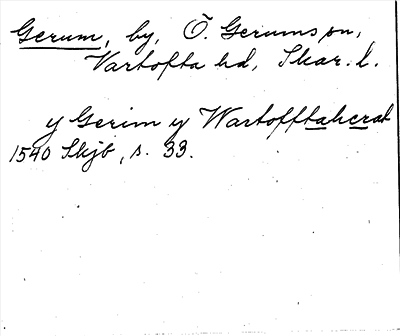 Gerum, by, Ö. Gerums sn,
Vartofta hd, Skar. l.
y Gerim y Wartofftaherat
1540 Skjb, s. 33.